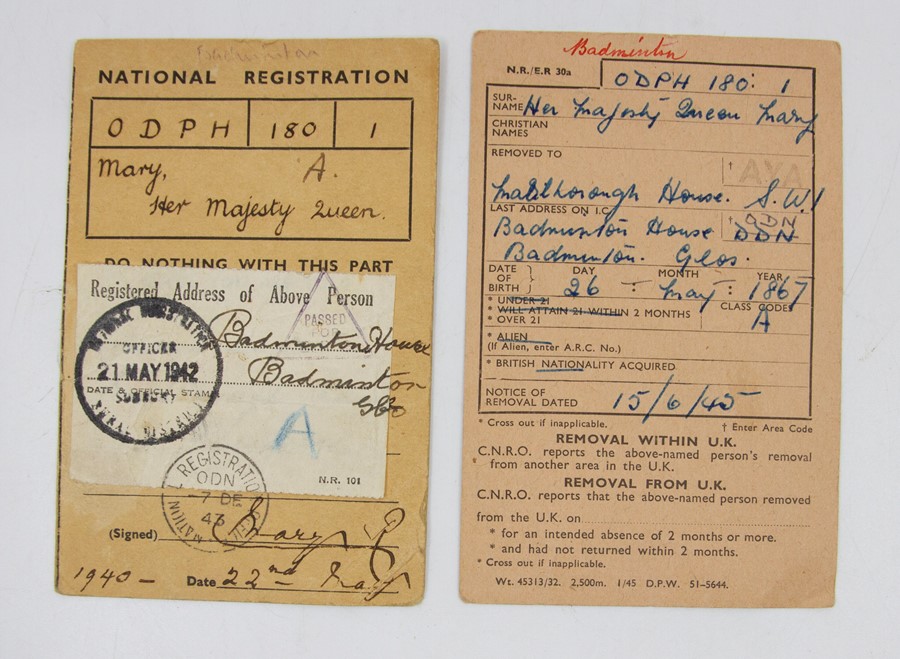 Badminton
NATIONAL REGISTRATION
ODPH 180 1
Mary, A.
Her Majesty Queen.
DO NOTHING WITH THIS PART
Registered Address of Above Person
PASSED
Badminton House
Badminton
Glos
NATIONAL REGISTRATION
OFFICER
21 MAY 1942
DATE & OFFICIAL STAMP
SODBURY
RURAL DISTRICT
A
N.R. 101
NATIONAL REGISTRATION OFFICE
ODN
-7 DE
43
(Signed) Mary R
1940 - Date 22nd May
Badminton
N.R./E.R 30a ODPH 180: 1
SUR-
NAME Her Majesty Queen Mary
CHRISTIAN
NAMES
REMOVED TO † AYA
Marlborough House. S.W.1
LAST ADDRESS ON I.C. † ODN
Badminton House DDN
Badminton. Glos.
DATE OF BIRTH } DAY MONTH YEAR
26 - May : 1867
* UNDER 21 CLASS CODES
* WILL ATTAIN 21 WITHIN 2 MONTHS A
* OVER 21
* ALIEN
(If Alien, enter A.R.C. No.)
* BRITISH NATIONALITY ACQUIRED
NOTICE OF
REMOVAL DATED 15/6/45
* Cross out if inapplicable. † Enter Area Code
REMOVAL WITHIN U.K.
C.N.R.O. reports the above-named person's removal
* from another area in the U.K.
REMOVAL FROM U.K.
C.N.R.O. reports that the above-named person removed
from the U.K. on
* for an intended absence of 2 months or more.
* and had not returned within 2 months.
* Cross out if inapplicable.
Wt. 45313/32. 2,500m. 1/45 D.P.W. 51-5644.